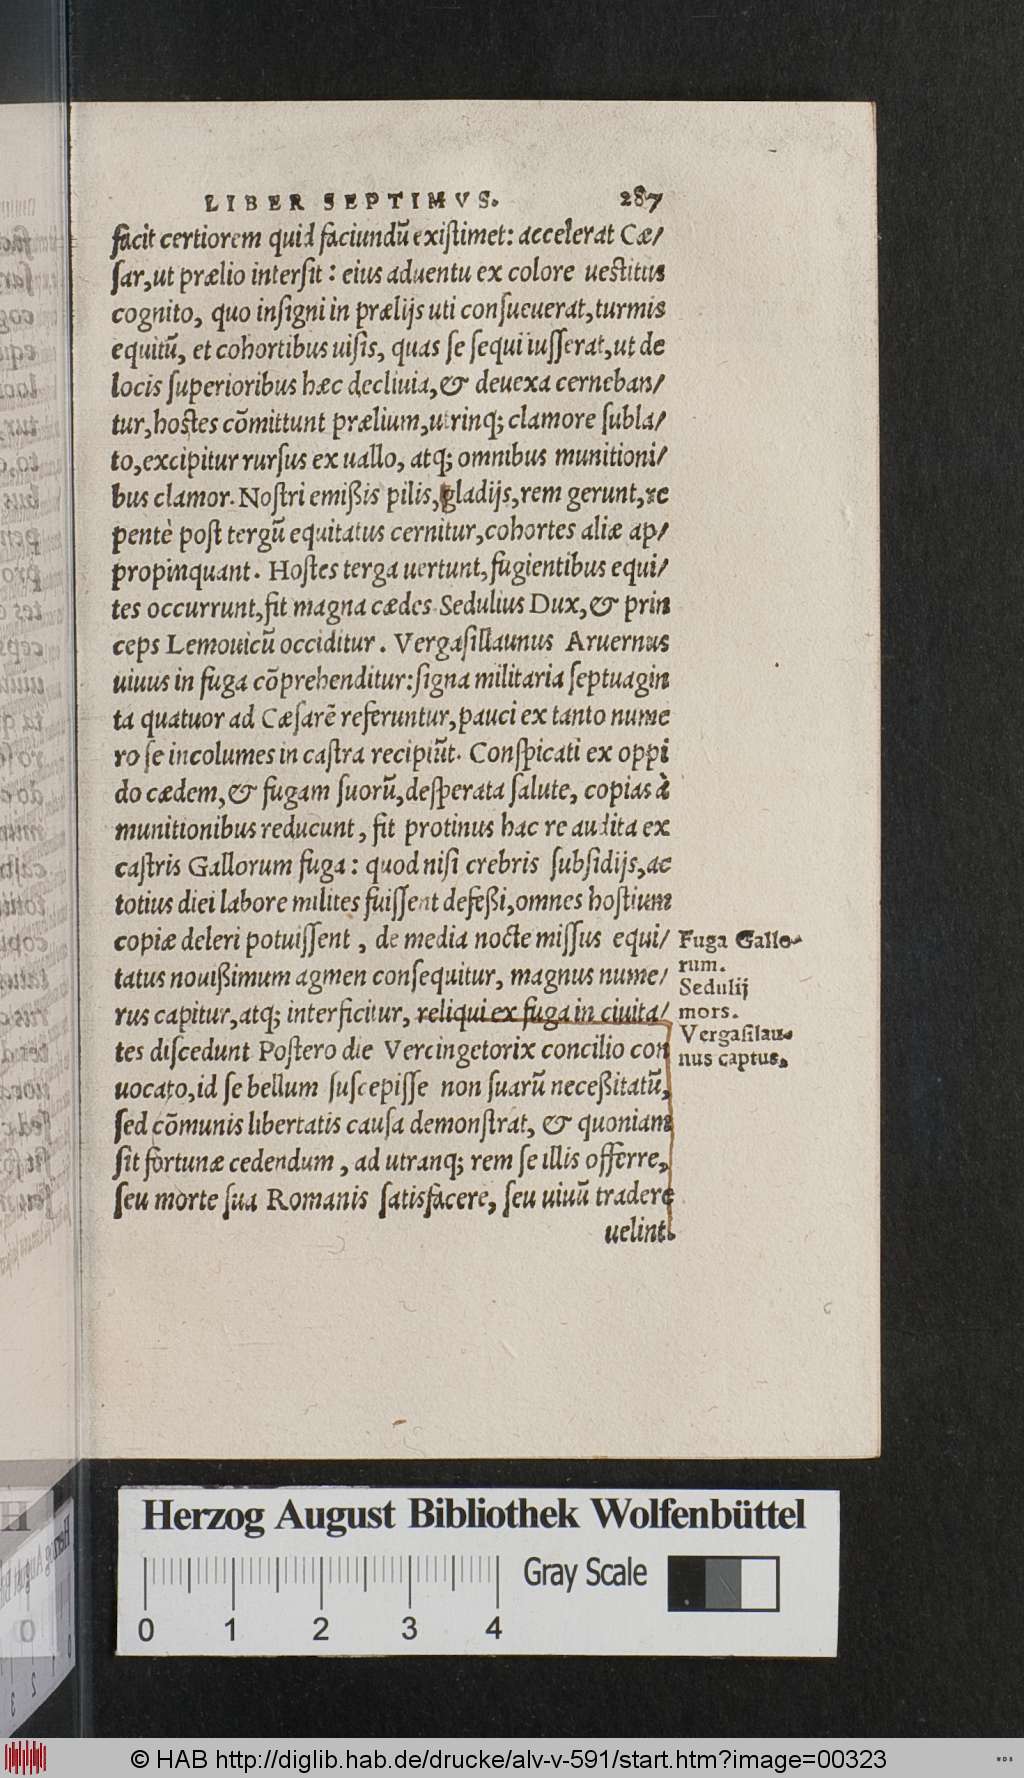 LIBER SEPTIMVS. 287
facit certiorem quid faciundũ exiſtimet: accelerat Cæ/
ſar,ut prælio interſit: eius aduentu ex colore ueſtitus
cognito, quo inſigni in prælijs uti conſueuerat,turmis
equitũ, et cohortibus uiſis, quas ſe ſequi iuſſerat,ut de
locis ſuperioribus hæc decliuia,& deuexa cerneban/
tur,hoſtes cõmittunt prælium,utrinq; clamore ſubla/
to,excipitur rurſus ex uallo, atq; omnibus munitioni/
bus clamor. Noſtri emißis pilis,gladijs,rem gerunt,re
pentè poſt tergũ equitatus cernitur,cohortes aliæ ap/
propinquant. Hoſtes terga uertunt,fugientibus equi/
tes occurrunt,fit magna cædes. Sedulius Dux,& prin
ceps Lemouicũ occiditur. Vergaſillaunus Aruernus
uiuus in fuga cõprehenditur:ſigna militaria ſeptuagin
ta quatuor ad Cæſarẽ referuntur,pauci ex tanto nume
ro ſe incolumes in caſtra recipiũt. Conſpicati ex oppi
do cædem,& fugam ſuorũ,deſperata ſalute, copias à
munitionibus reducunt, fit protinus hac re audita ex
caſtris Gallorum fuga: quod niſi crebris ſubſidijs,ac
totius diei labore milites fuiſſent defeßi,omnes hoſtium
copiæ deleri potuiſſent, de media nocte miſſus equi/
tatus nouißimum agmen conſequitur, magnus nume/
rus capitur,atq; interficitur, reliqui ex fuga in ciuita/
tes diſcedunt Poſtero die Vercingetorix concilio con
uocato,id ſe bellum ſuſcepiſſe non ſuarũ neceßitatũ,
ſed cõmunis libertatis cauſa demonſtrat, & quoniam
ſit fortunæ cedendum, ad utranq; rem ſe illis offerre,
ſeu morte ſua Romanis ſatisfacere, ſeu uiuũ tradere
uelint.
Fuga Gallo-
rum.
Sedulij
mors.
Vergaſilau-
nus captus.
Herzog August Bibliothek Wolfenbüttel
Gray Scale
0 1 2 3 4
© HAB http://diglib.hab.de/drucke/alv-v-591/start.htm?image=00323